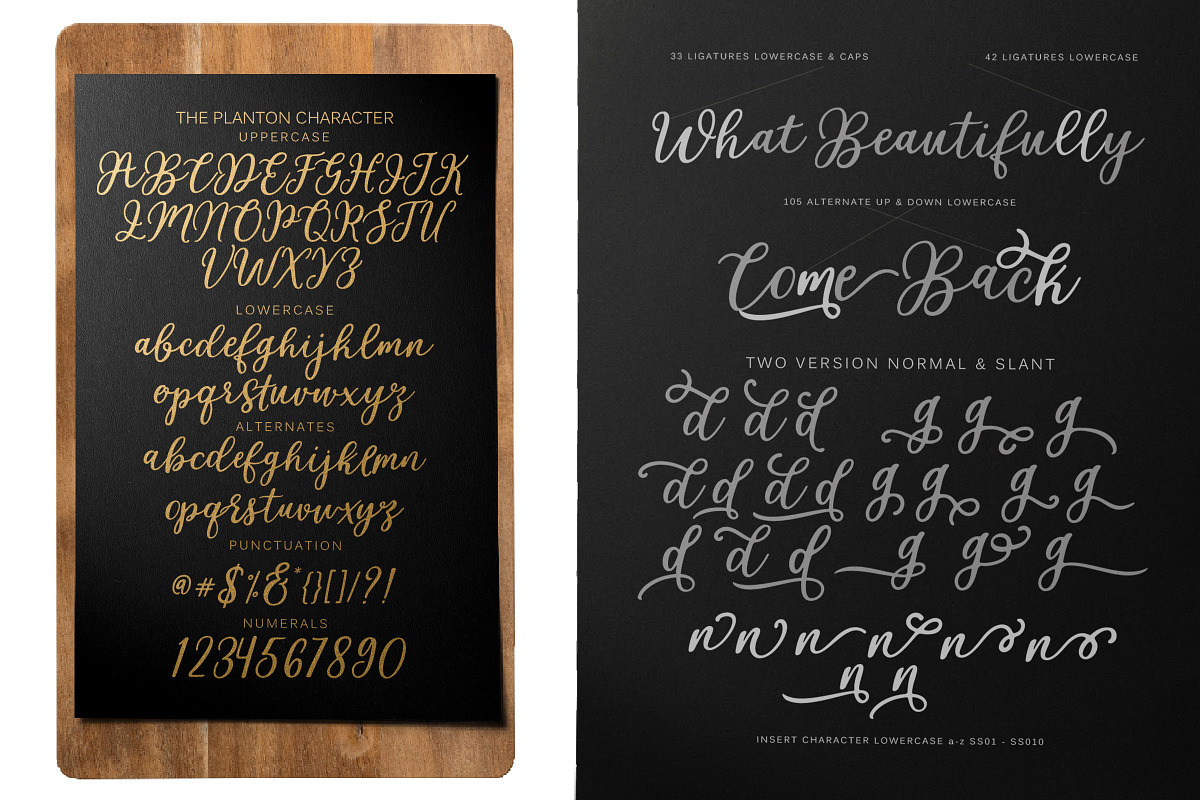 THE PLANTON CHARACTER
UPPERCASE
ABCDEFGHIJK
LMNOPQRSTU
VWXYZ
LOWERCASE
abcdefghijklmn
opqrstuvwxyz
ALTERNATES
abcdefghijklmn
opqrstuvwxyz
PUNCTUATION
@#$%&*{}[]/?!
NUMERALS
1234567890
33 LIGATURES LOWERCASE & CAPS
42 LIGATURES LOWERCASE
What Beautifully
105 ALTERNATE UP & DOWN LOWERCASE
Come Back
TWO VERSION NORMAL & SLANT
d d d g g g
d d d d g g g g
d d d g g g
n n n n n n
n n
INSERT CHARACTER LOWERCASE a-z SS01 - SS010